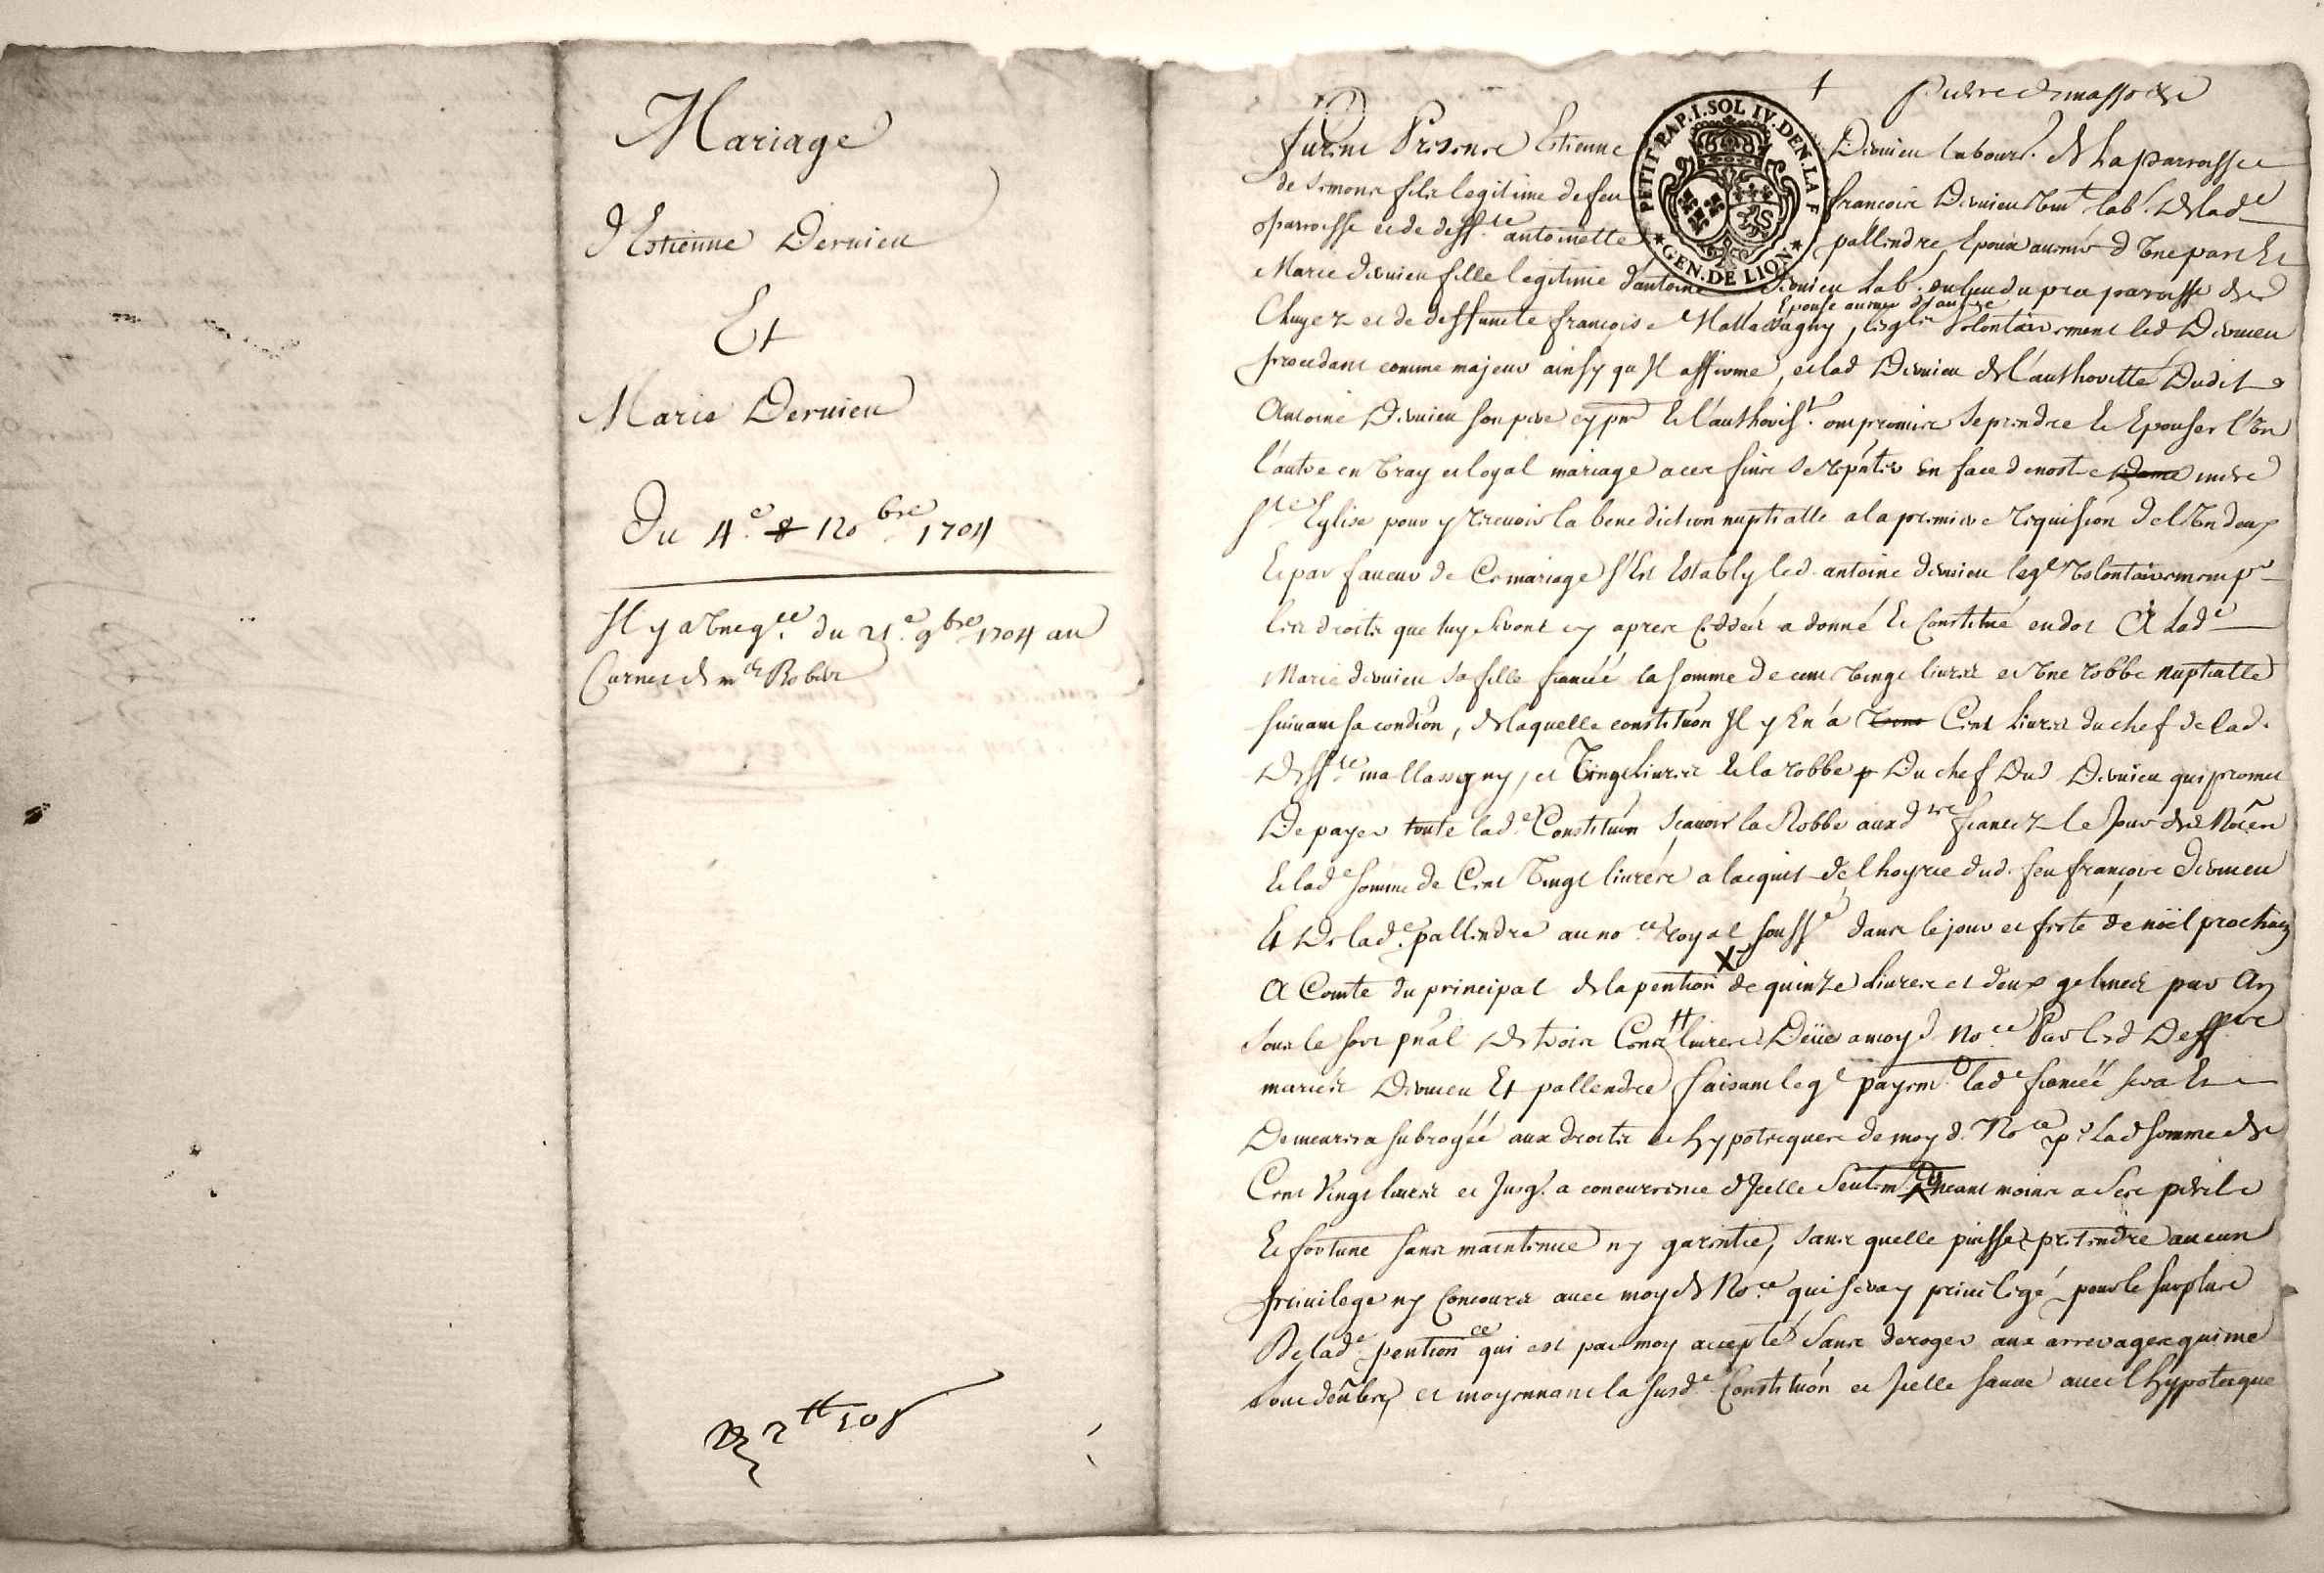 Mariage
d'Estienne Dervieu
Et
Marie Dervieu
Du 4.e 8 no.bre 1704
Il y a Une q.ce du 21.e 9bre 1704 au
Carnet de m.e Robert
2tt 10s
PETIT PAP. I. SOL IV. DEN. LA F
GEN. DE LION
furent Presens Estienne Dervieu labour. de la parroisse
de fils legitime de feu francois Dervieu lab. de lad.e
parroisse et de deff.te antoinette pallendre, Epoux avenir d'Une part Et
Marie dervieu fille legitime d'antoine dervieu Lab. parroisse de
Epouse avenir d'autre
et de deffuncte françoise Mallassagny, volontairement led Dervieu
procedant comme majeur ainsy qu Il affirme, et lad Dervieu de l'authoritté Dudit
Antoine Dervieu son pere cy pnt et l'authoris.t ont promis se prendre et Epouser l'Un
l'autre en Vray et loyal mariage a ces fins se rep'nter En face de nostre mere
S.te Eglise pour y recevoir la benediction nuptialle a la premiere requision de l'Un deux
Et par faveur de Ce mariage s'Est Estably led. antoine dervieu leq.l volontairement p.r
les droits que luy seront cy apres ceddés a donné Et Constitué en dot A lad.e
Marie dervieu sa fille fiancéé la somme de cent vingt livres et Une robbe nuptialle
suivant sa condion, de laquelle constituon Il y En a Cent livres du chef de lad.
Deff.te mallassagny, et Vingt livres Et la robbe Du chef Dud Dervieu qui promet
De payer toute lad.e Constituon scavoir la Robbe auxd fiancez le Jour des Noces
Et lad.e somme de Cent Vingt livres a lacquit de l'hoyrie dud. feu françois dervieu
Et De lad.e pallendre au no.re royal souss.é dans le jour et feste de noël prochain
A Comte du principal de la pention de quinze livres et deux gelines par An
sous le sort p'nal De trois Cents livres Deüe a moyd No.re Par lesd Deff
mariés Dervieu Et pallendre faisant leq.l payem.t lad.e fiancéé sera Et
Demeurera subrogéé aux droits et hypotheques de moy d. No.re p.r Lad somme de
Cent Vingt livres et Jusq. a concurrence d'Icelle seulem.t neant moins a ses perils
Et fortune sans maintenue ny garentie, sans quelle puisse pretendre aucun
privilege ny Concours avec moyd No.re qui seray privilegé pour le surplus
De lad.e pention qui est par moy accepté sans deroger aux arrerages qui me
sont deubs et moyennant la susd.e Constituon et Icelle sauve avec l'hypoteque